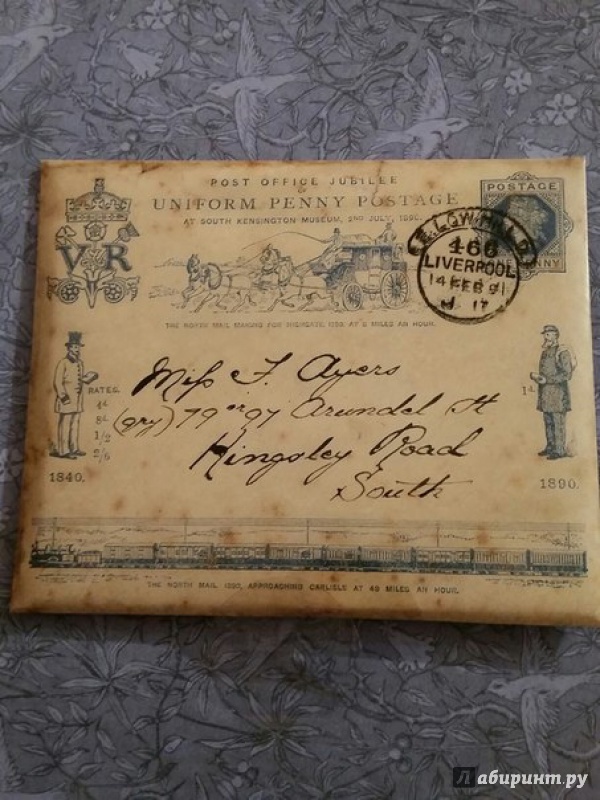 POST OFFICE JUBILEE
OF
UNIFORM PENNY POSTAGE
AT SOUTH KENSINGTON MUSEUM, 2ND JULY, 1890.
V R
POSTAGE
NE PENNY
E. LOW HILL.D
466
LIVERPOOL
14 FEB 91
17
THE NORTH MAIL MAKING FOR HIGHGATE, 1790, AT 8 MILES AN HOUR.
Miss F. Ayers
(qry) 79 or 97 Arundel St
Kingsley Road
South
RATES.
4d.
8d.
1/2
2/6
1840.
1d.
1890.
THE NORTH MAIL 1890, APPROACHING CARLISLE AT 48 MILES AN HOUR.
Лабиринт.ру